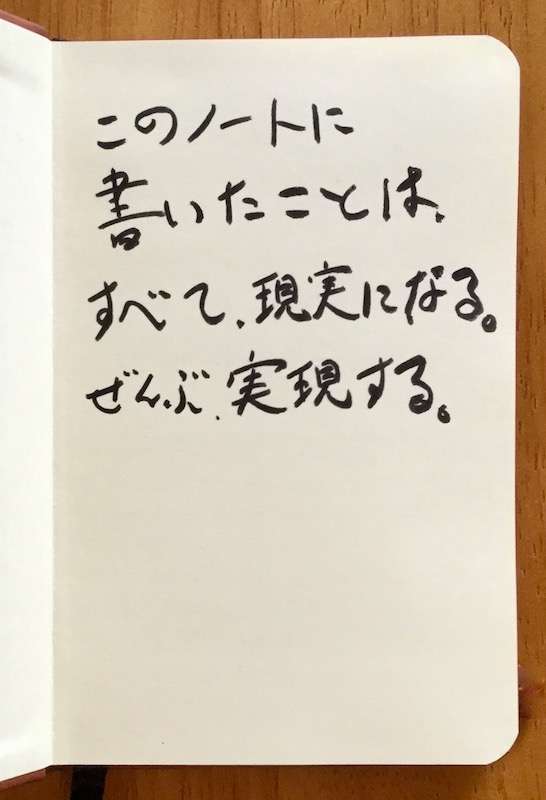 このノートに
書いたことは、
すべて、現実になる。
ぜんぶ、実現する。